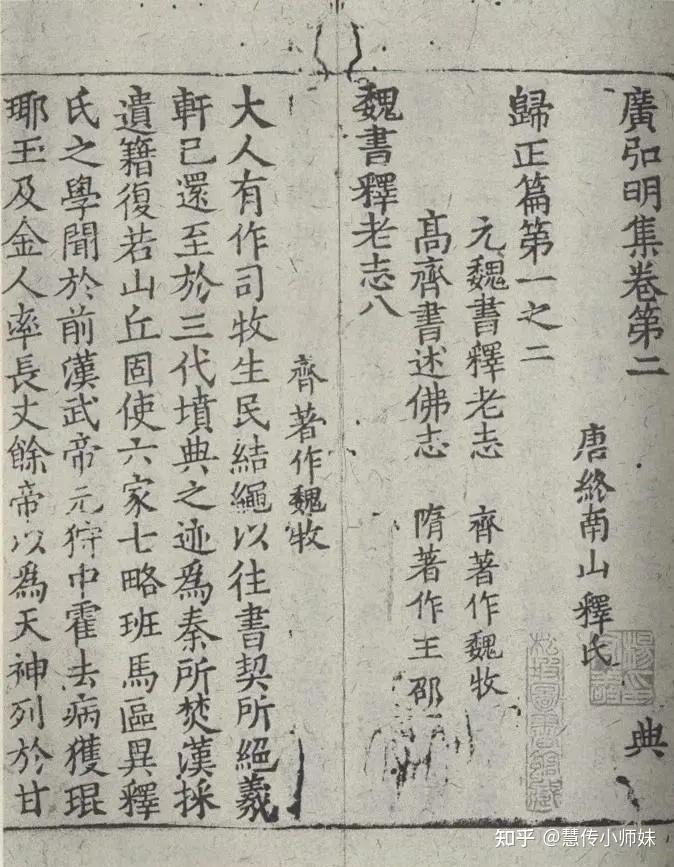 廣弘明集卷第二　典
唐終南山釋氏
歸正篇第一之二
元魏書釋老志　齊著作魏牧
高齊書述佛志　隋著作王邵
魏書釋老志八
齊著作魏牧
大人有作司牧生民結繩以往書契所絕羲
軒已還至於三代墳典之迹為秦所焚漢採
遺籍復若山丘固使六家七略班馬區異釋
氏之學聞於前漢武帝元狩中霍去病獲琨
耶王及金人率長丈餘帝以為天神列於甘
知乎 @慧传小师妹